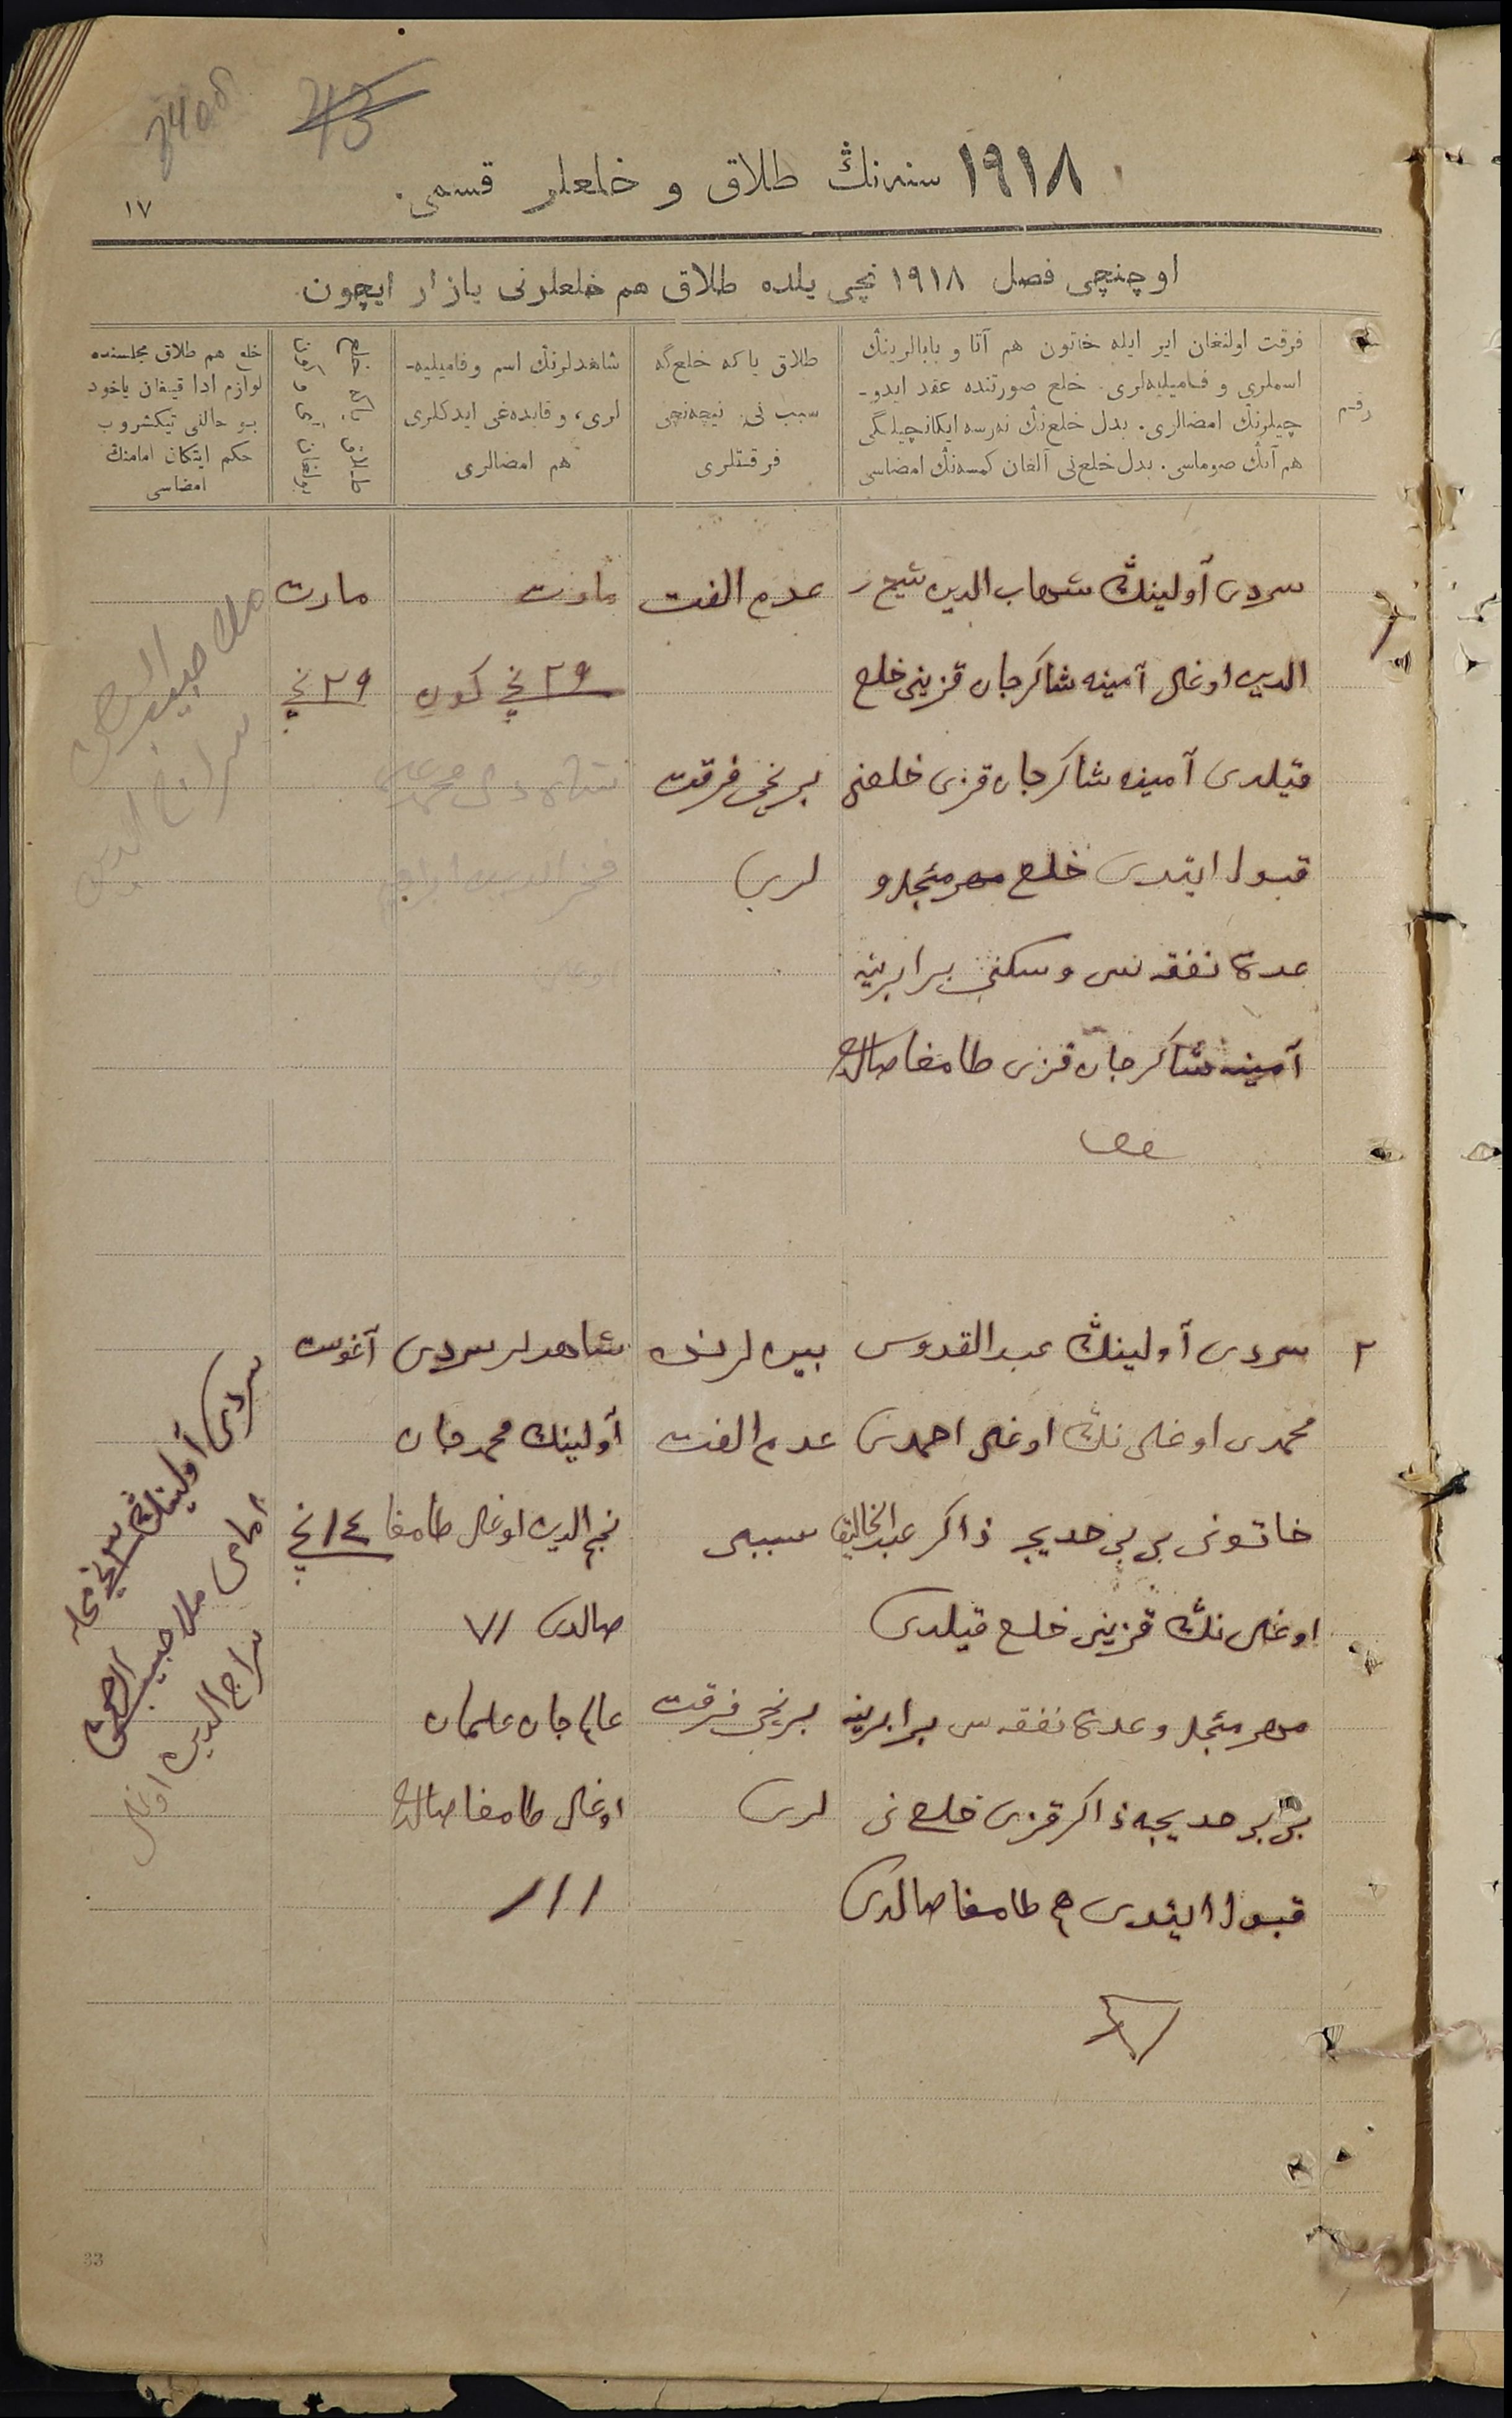 ١٩١٨ سنه‌نڭ طلاق و خلعلر قسمی.
١٧
اوچنچی فصل ١٩١٨ نچی یلده طلاق هم خلعلرنی یازار ایچون.
رقم
فرقت اولنغان ایر ایله خاتون هم آتا و بابالرینڭ
اسملری و فامیلیه‌لری. خلع صورتنده عقد ایدو-
چیلرنڭ امضالری. بدل خلع‌نڭ نه‌رسه ایکانچیلگی
هم آنڭ صوماسی. بدل خلع‌نی آلغان کمسه‌نڭ امضاسی
طلاق یا که خلع‌گه
سبب نی. نیچه‌نچی
فرقتلری
شاهدلرنڭ اسم و فامیلیه-
لری، و قایده‌غی ایدکلری
هم امضالری
طلاق یا که خلع
بولغان آی و کون
خلع هم طلاق مجلسنده
لوازم ادا قیلغان یاخود
بو حالنی تیکشروب
حکم ایتکان امامنڭ
امضاسی
١
سردی آولینڭ شهاب الدین شیخ
الدین اوغلی آمینه شاکرجان قزینی خلع
قیلدی آمینه شاکرجان قزی خلعنی
قبول ایتدی خلع مهر مئجل و
عدة نفقه سی و سکنی برابرینه
آمینه شاکرجان قزی طامغا صالدی
عدم الفت
برنچی فرقت
لری
مارت
٢٩ نچی کون
مارت
٢٩ نچی
ملا حبیب الرحمن
سراج الدین
٢
سردی آولینڭ عبد القدوس
محمدی اوغلی نڭ اوغلی احمدی
خاتونی بی بی خدیجه ذاکر عبد الخالق
اوغلی نڭ قزینی خلع قیلدی
مهر مئجل و عدة نفقه سی برابرینه
بی بی خدیجه ذاکر قزی خلع نی
قبول ایتدی هم طامغا صالدی
بیت لرنده
عدم الفت
سببلی
برنچی فرقت
لری
شاهدلر سردی
آولینڭ محمدجان
نجم الدین اوغلی طامغا
صالدی
عالم جان
اوغلی طامغا صالدی
آغوست
١٤ نچی
سردی آولینڭ محله
امامی ملا حبیب الرحمن
سراج الدین اوغلی
33